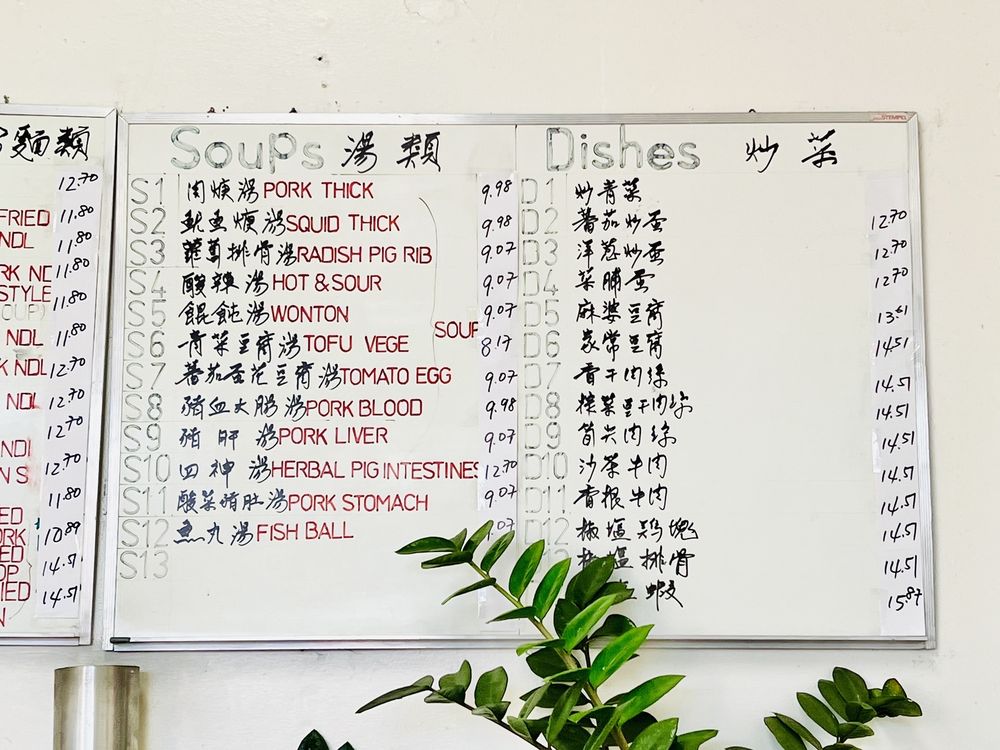 麵類
12.70
FRIED 11.80
NDL 11.80
RK ND 11.80
STYLE
11.80
NDL 11.80
K NDL 12.70
NDL 12.70
12.70
NDI
N S 12.70
11.80
ED
ORK 10.89
ED
OP 14.51
IED 14.51
N
Soups 湯類
S1 肉焿湯 PORK THICK 9.98
S2 魷魚焿湯 SQUID THICK 9.98
S3 蘿蔔排骨湯 RADISH PIG RIB 9.07
S4 酸辣湯 HOT & SOUR 9.07
S5 餛飩湯 WONTON 9.07
SOUP
S6 青菜豆腐湯 TOFU VEGE 8.17
S7 蕃茄蛋花豆腐湯 TOMATO EGG 9.07
S8 豬血大腸湯 PORK BLOOD 9.98
S9 豬肝湯 PORK LIVER 9.07
S10 四神湯 HERBAL PIG INTESTINES 12.70
S11 酸菜豬肚湯 PORK STOMACH 9.07
S12 魚丸湯 FISH BALL .07
S13
Dishes 炒菜
STEMPO
D1 炒青菜
D2 蕃茄炒蛋 12.70
D3 洋蔥炒蛋 12.70
D4 菜脯蛋 12.70
D5 麻婆豆腐 13.61
D6 家常豆腐 14.51
D7 香干肉絲 14.51
D8 榨菜豆干肉絲 14.51
D9 筍尖肉絲 14.51
D10 沙茶牛肉 14.51
D11 香根牛肉 14.51
D12 椒塩鷄塊 14.51
椒塩排骨 14.51
塩蝦 15.87